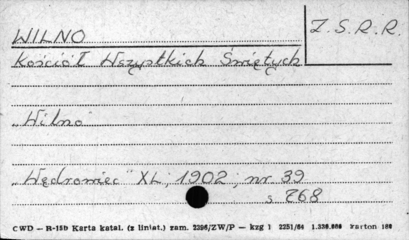 WILNO
Z. S. R. R.
Kościół Wszystkich Świętych
"Wilno"
"Wędrowiec" XL, 1902, nr 39
s 768
CWD – R-15b Karta katal. (z liniat.) zam. 2396/ZW/P – kzg 1 2251/64 karton